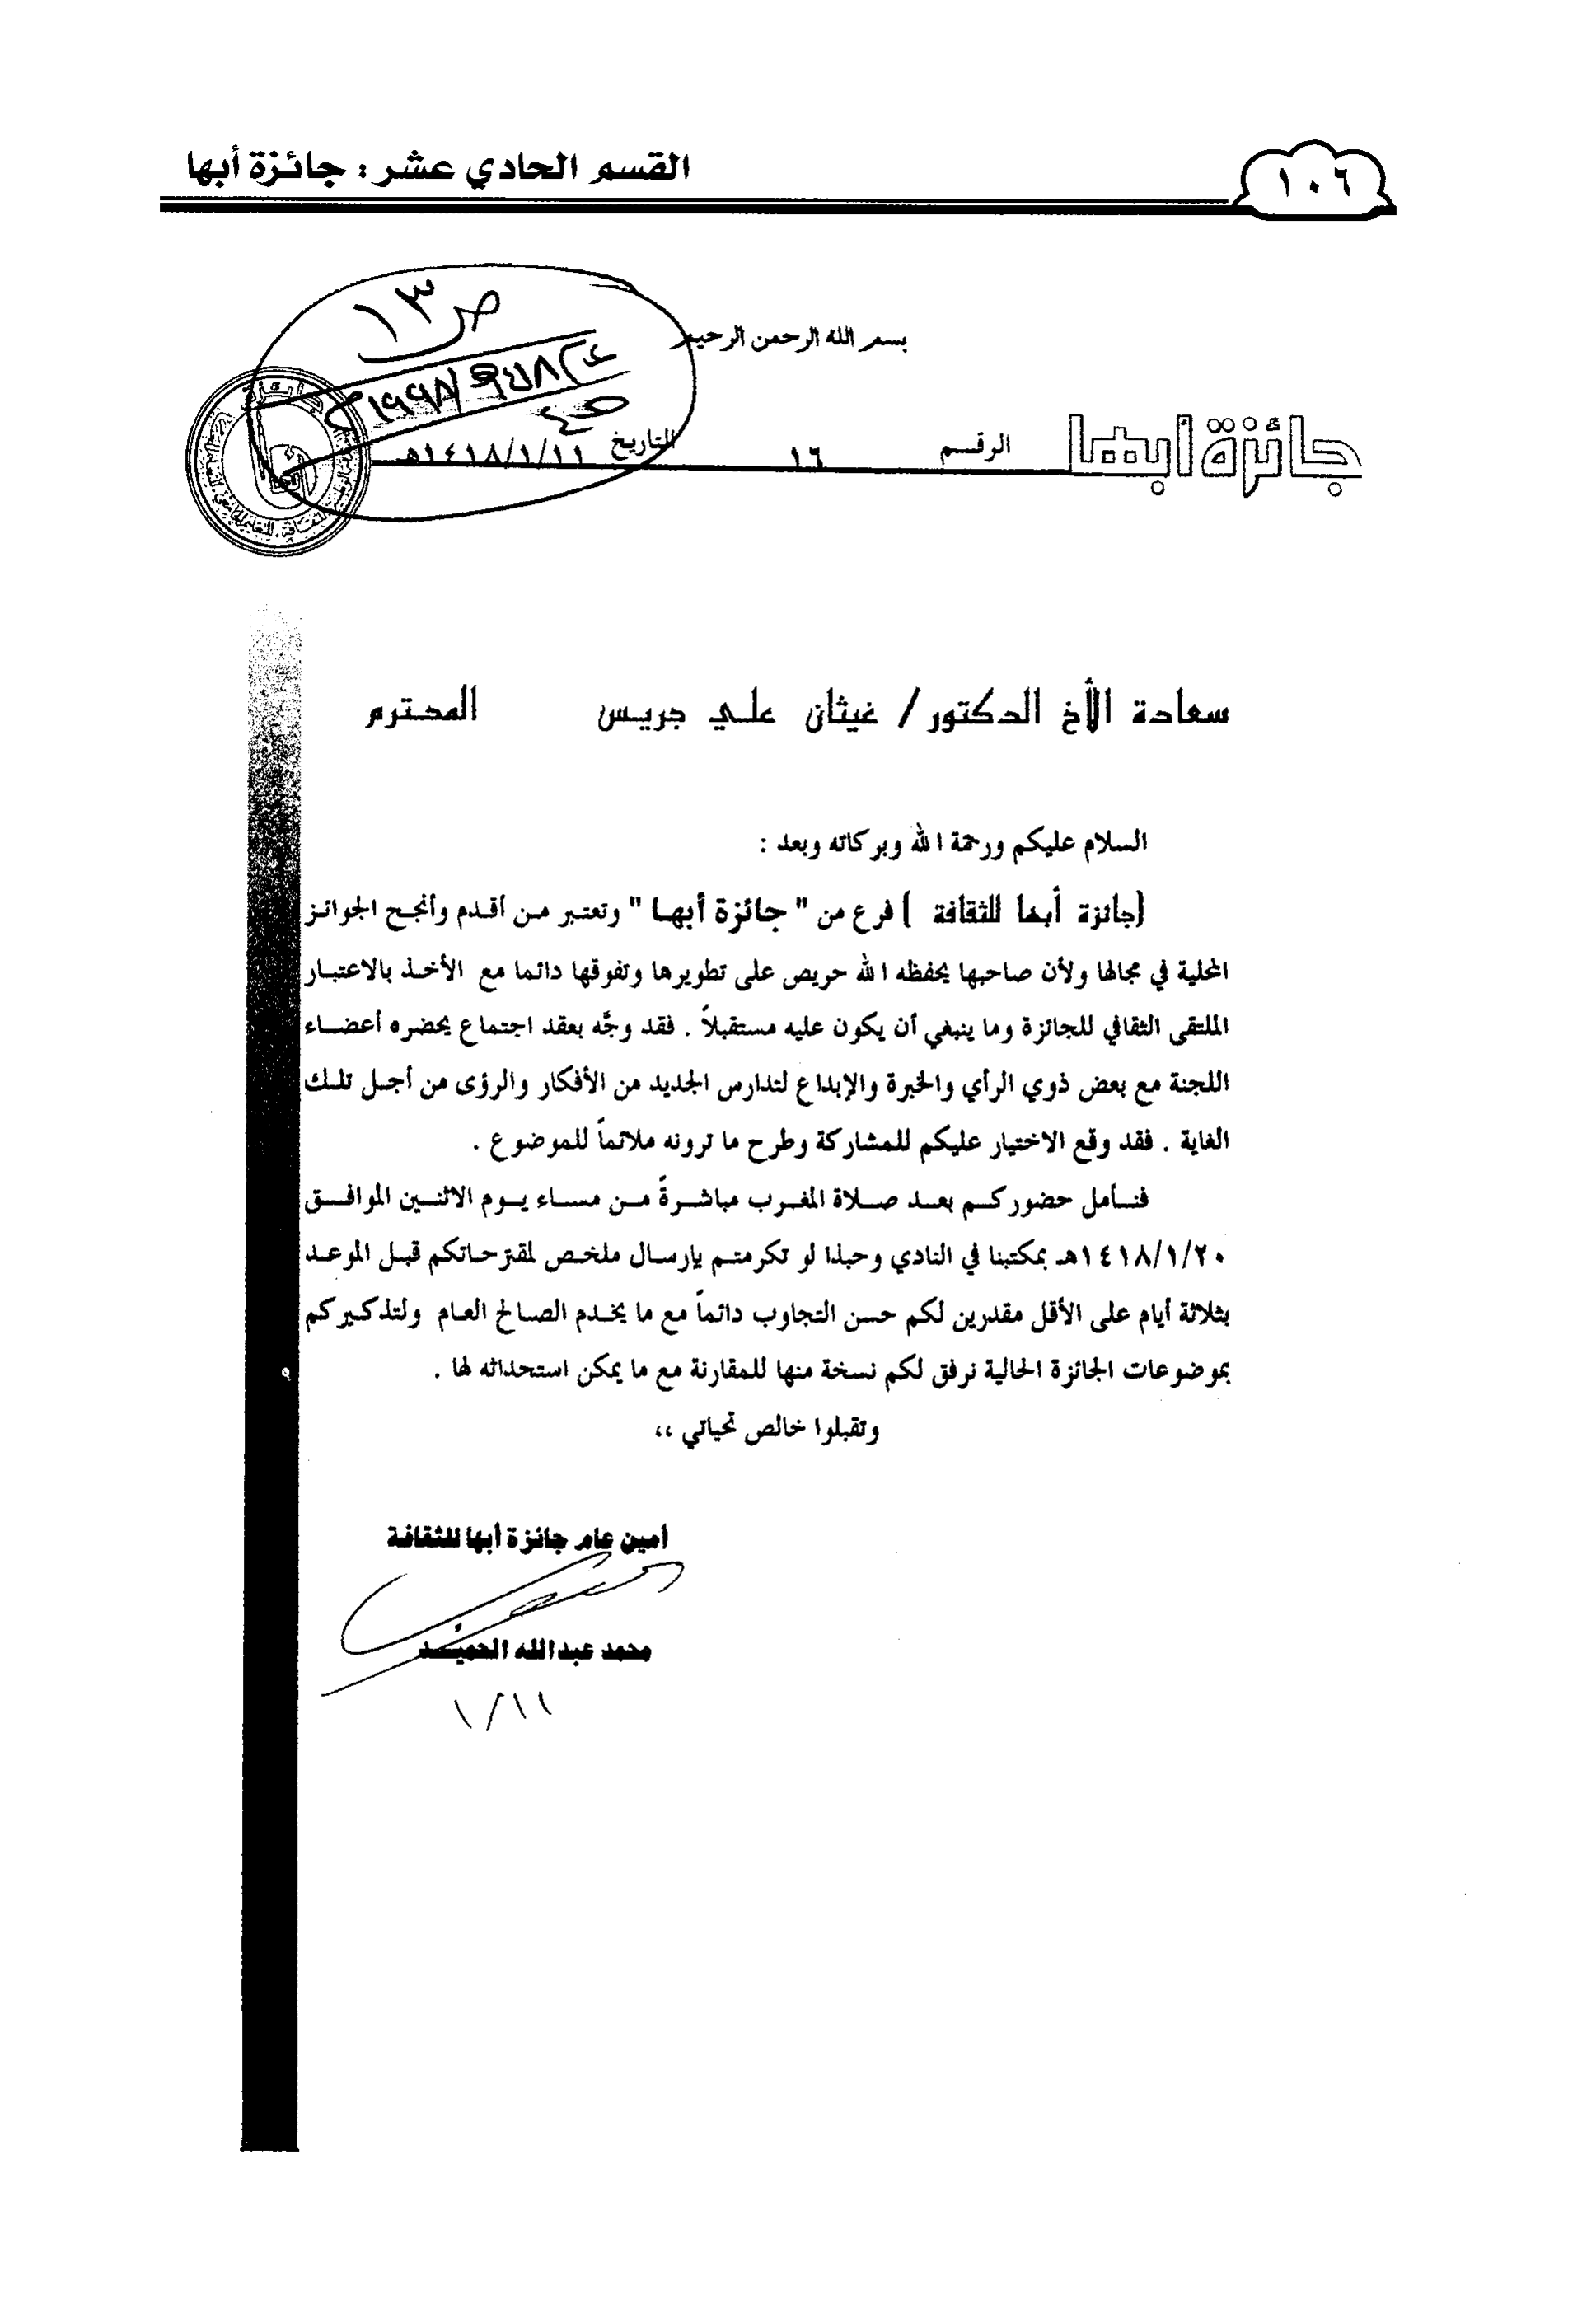 ١٠٦
القسم الحادي عشر : جائزة أبها
ص ١٣
بسم الله الرحمن الرحيم
جائزة أبها
الرقم ١٦ التاريخ ١٤١٨/١/١١هـ
سعادة الأخ الدكتور / غيثان علي جريس المحترم
السلام عليكم ورحمة الله وبركاته وبعد :
(جائزة أبها للثقافة ) فرع من " جائزة أبها " وتعتبر من أقدم وأنجح الجوائز
المحلية في مجالها ولأن صاحبها يحفظه الله حريص على تطويرها وتفوقها دائما مع الأخذ بالاعتبار
الملتقى الثقافي للجائزة وما ينبغي أن يكون عليه مستقبلاً . فقد وجَّه بعقد اجتماع يحضره أعضاء
اللجنة مع بعض ذوي الرأي والخبرة والإبداع لتدارس الجديد من الأفكار والرؤى من أجل تلك
الغاية . فقد وقع الاختيار عليكم للمشاركة وطرح ما ترونه ملائماً للموضوع .
فنأمل حضوركم بعد صلاة المغرب مباشرةً من مساء يوم الاثنين الموافق
١٤١٨/١/٢٠هـ بمكتبنا في النادي وحبذا لو تكرمتم بإرسال ملخص لمقترحاتكم قبل الموعد
بثلاثة أيام على الأقل مقدرين لكم حسن التجاوب دائماً مع ما يخدم الصالح العام ولتذكيركم
بموضوعات الجائزة الحالية نرفق لكم نسخة منها للمقارنة مع ما يمكن استحداثه لها .
وتقبلوا خالص تحياتي ،،
أمين عام جائزة أبها للثقافة
محمد عبدالله الحميد
١/١١